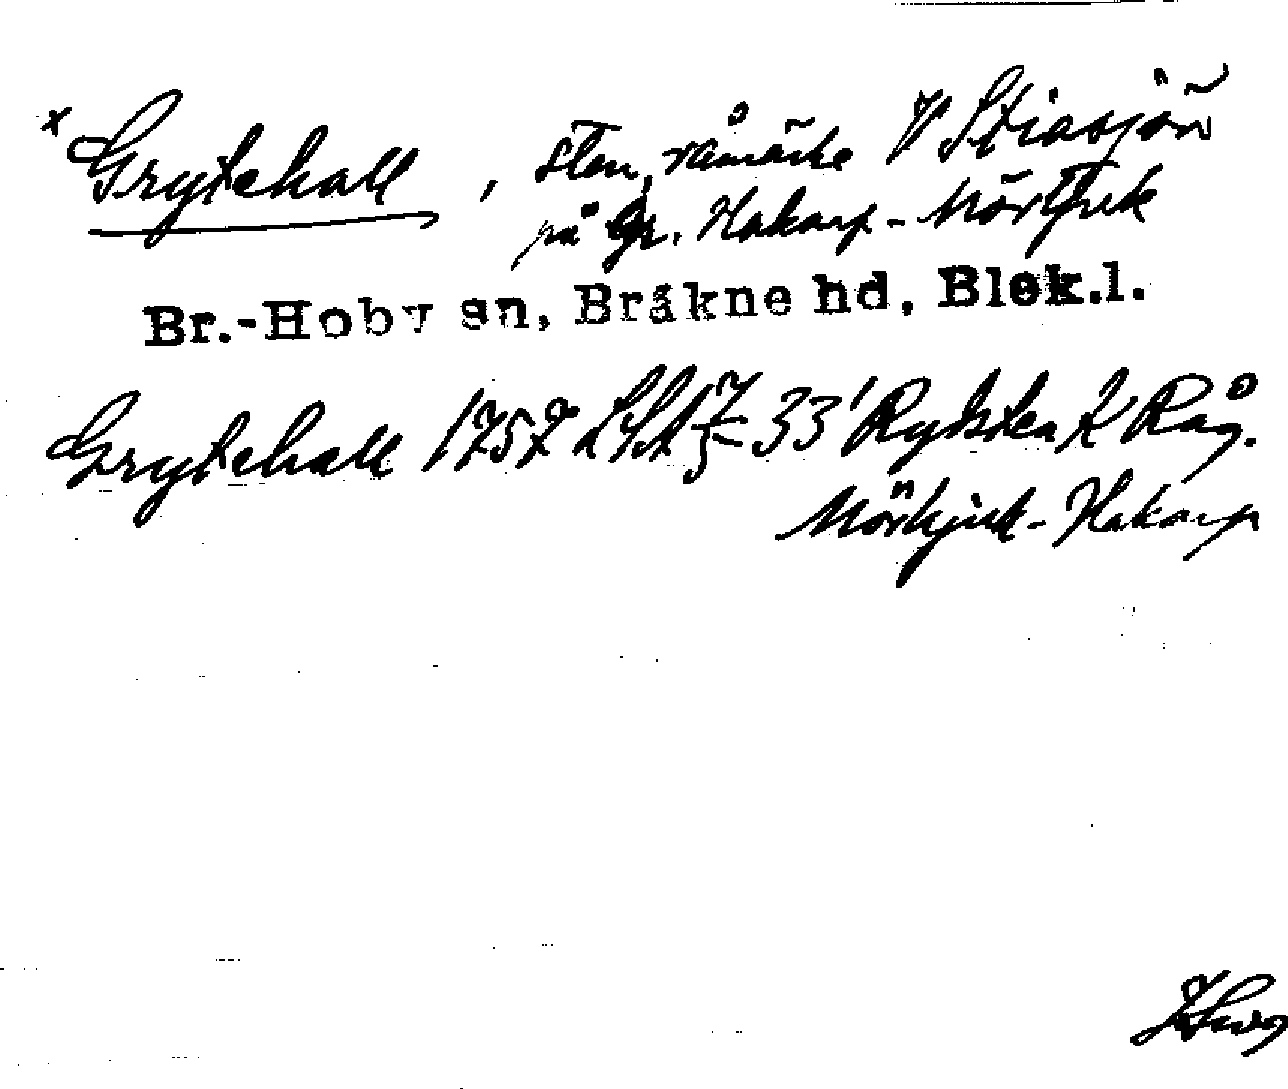 x Grytehall, sten, råmärke V Stiasjön
på gr. Hakarp - Mörtjuck
Br.-Hoby sn, Bräkne hd, Blek.l.
Grytehall 1757 LSA 33' Rysten Råg.
Mörtjuck - Hakarp